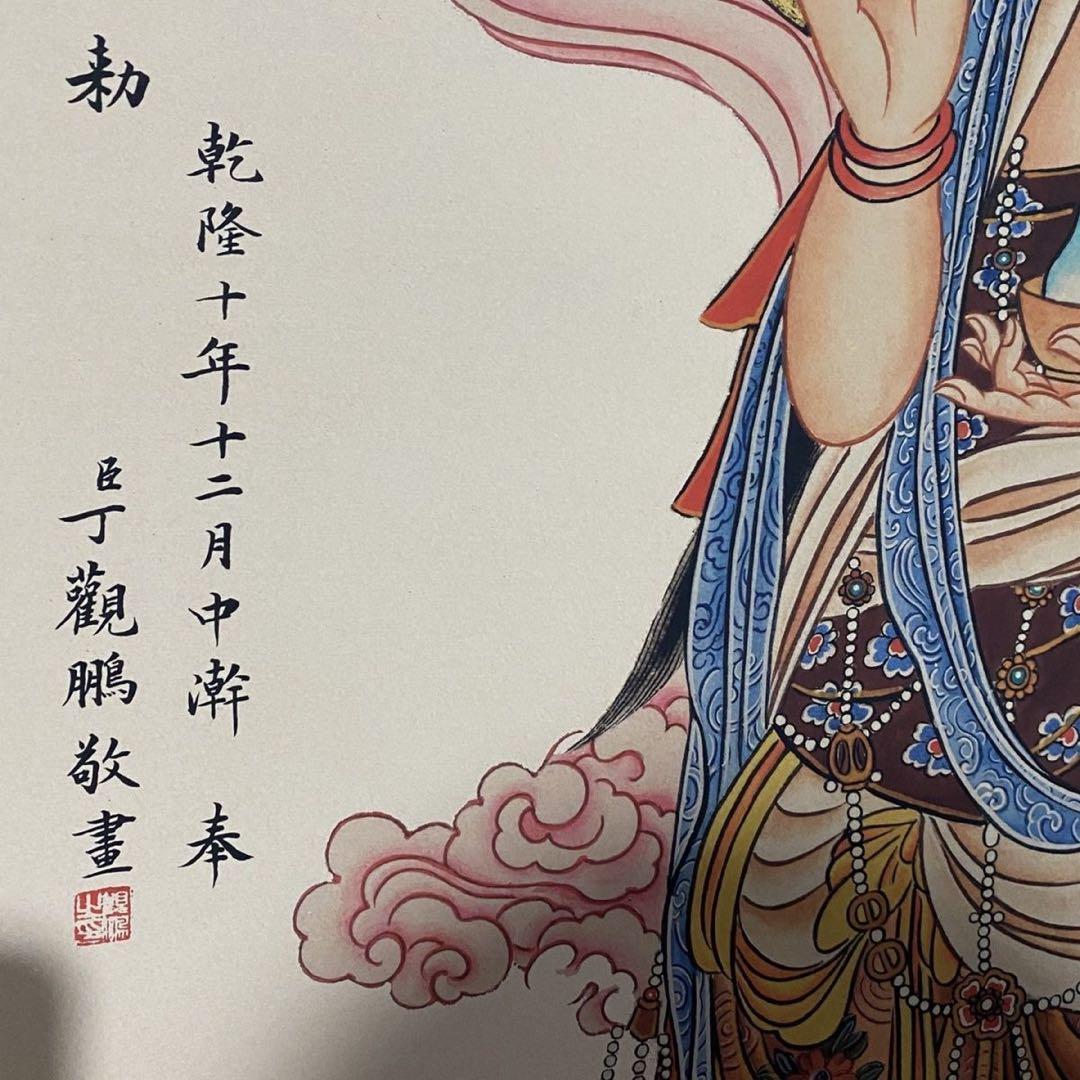 乾隆十年十二月中澣奉
勅
臣丁觀鵬敬畫